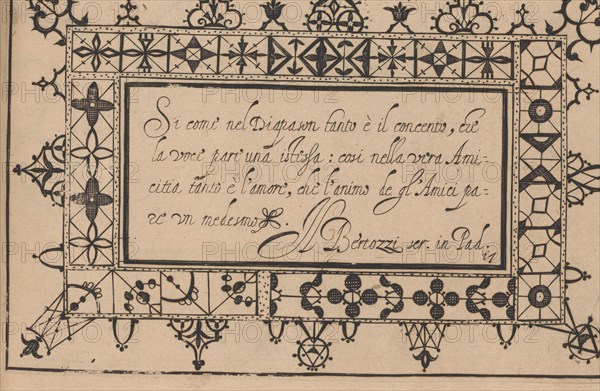 Si come nel Diapason tanto è il concento, che
la voce pare una istessa: cosi nella vera Ami-
citia tanto è l'amore, che l'animo de gl'Amici pa-
re vn medesmo
Bertozzi scr. in Pad.